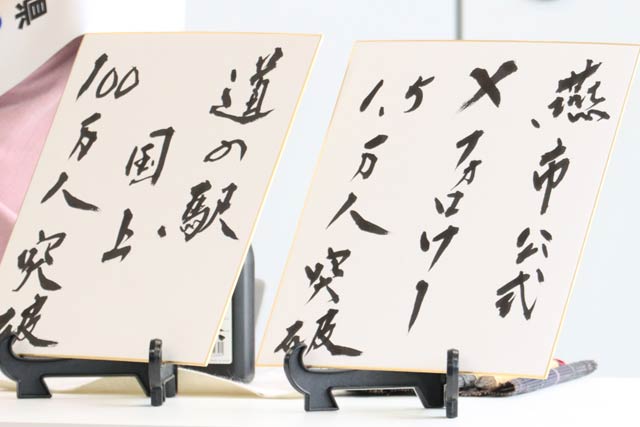 燕市公式
Xフォロワー
1.5万人突破
道の駅
国上
100万人突破
県